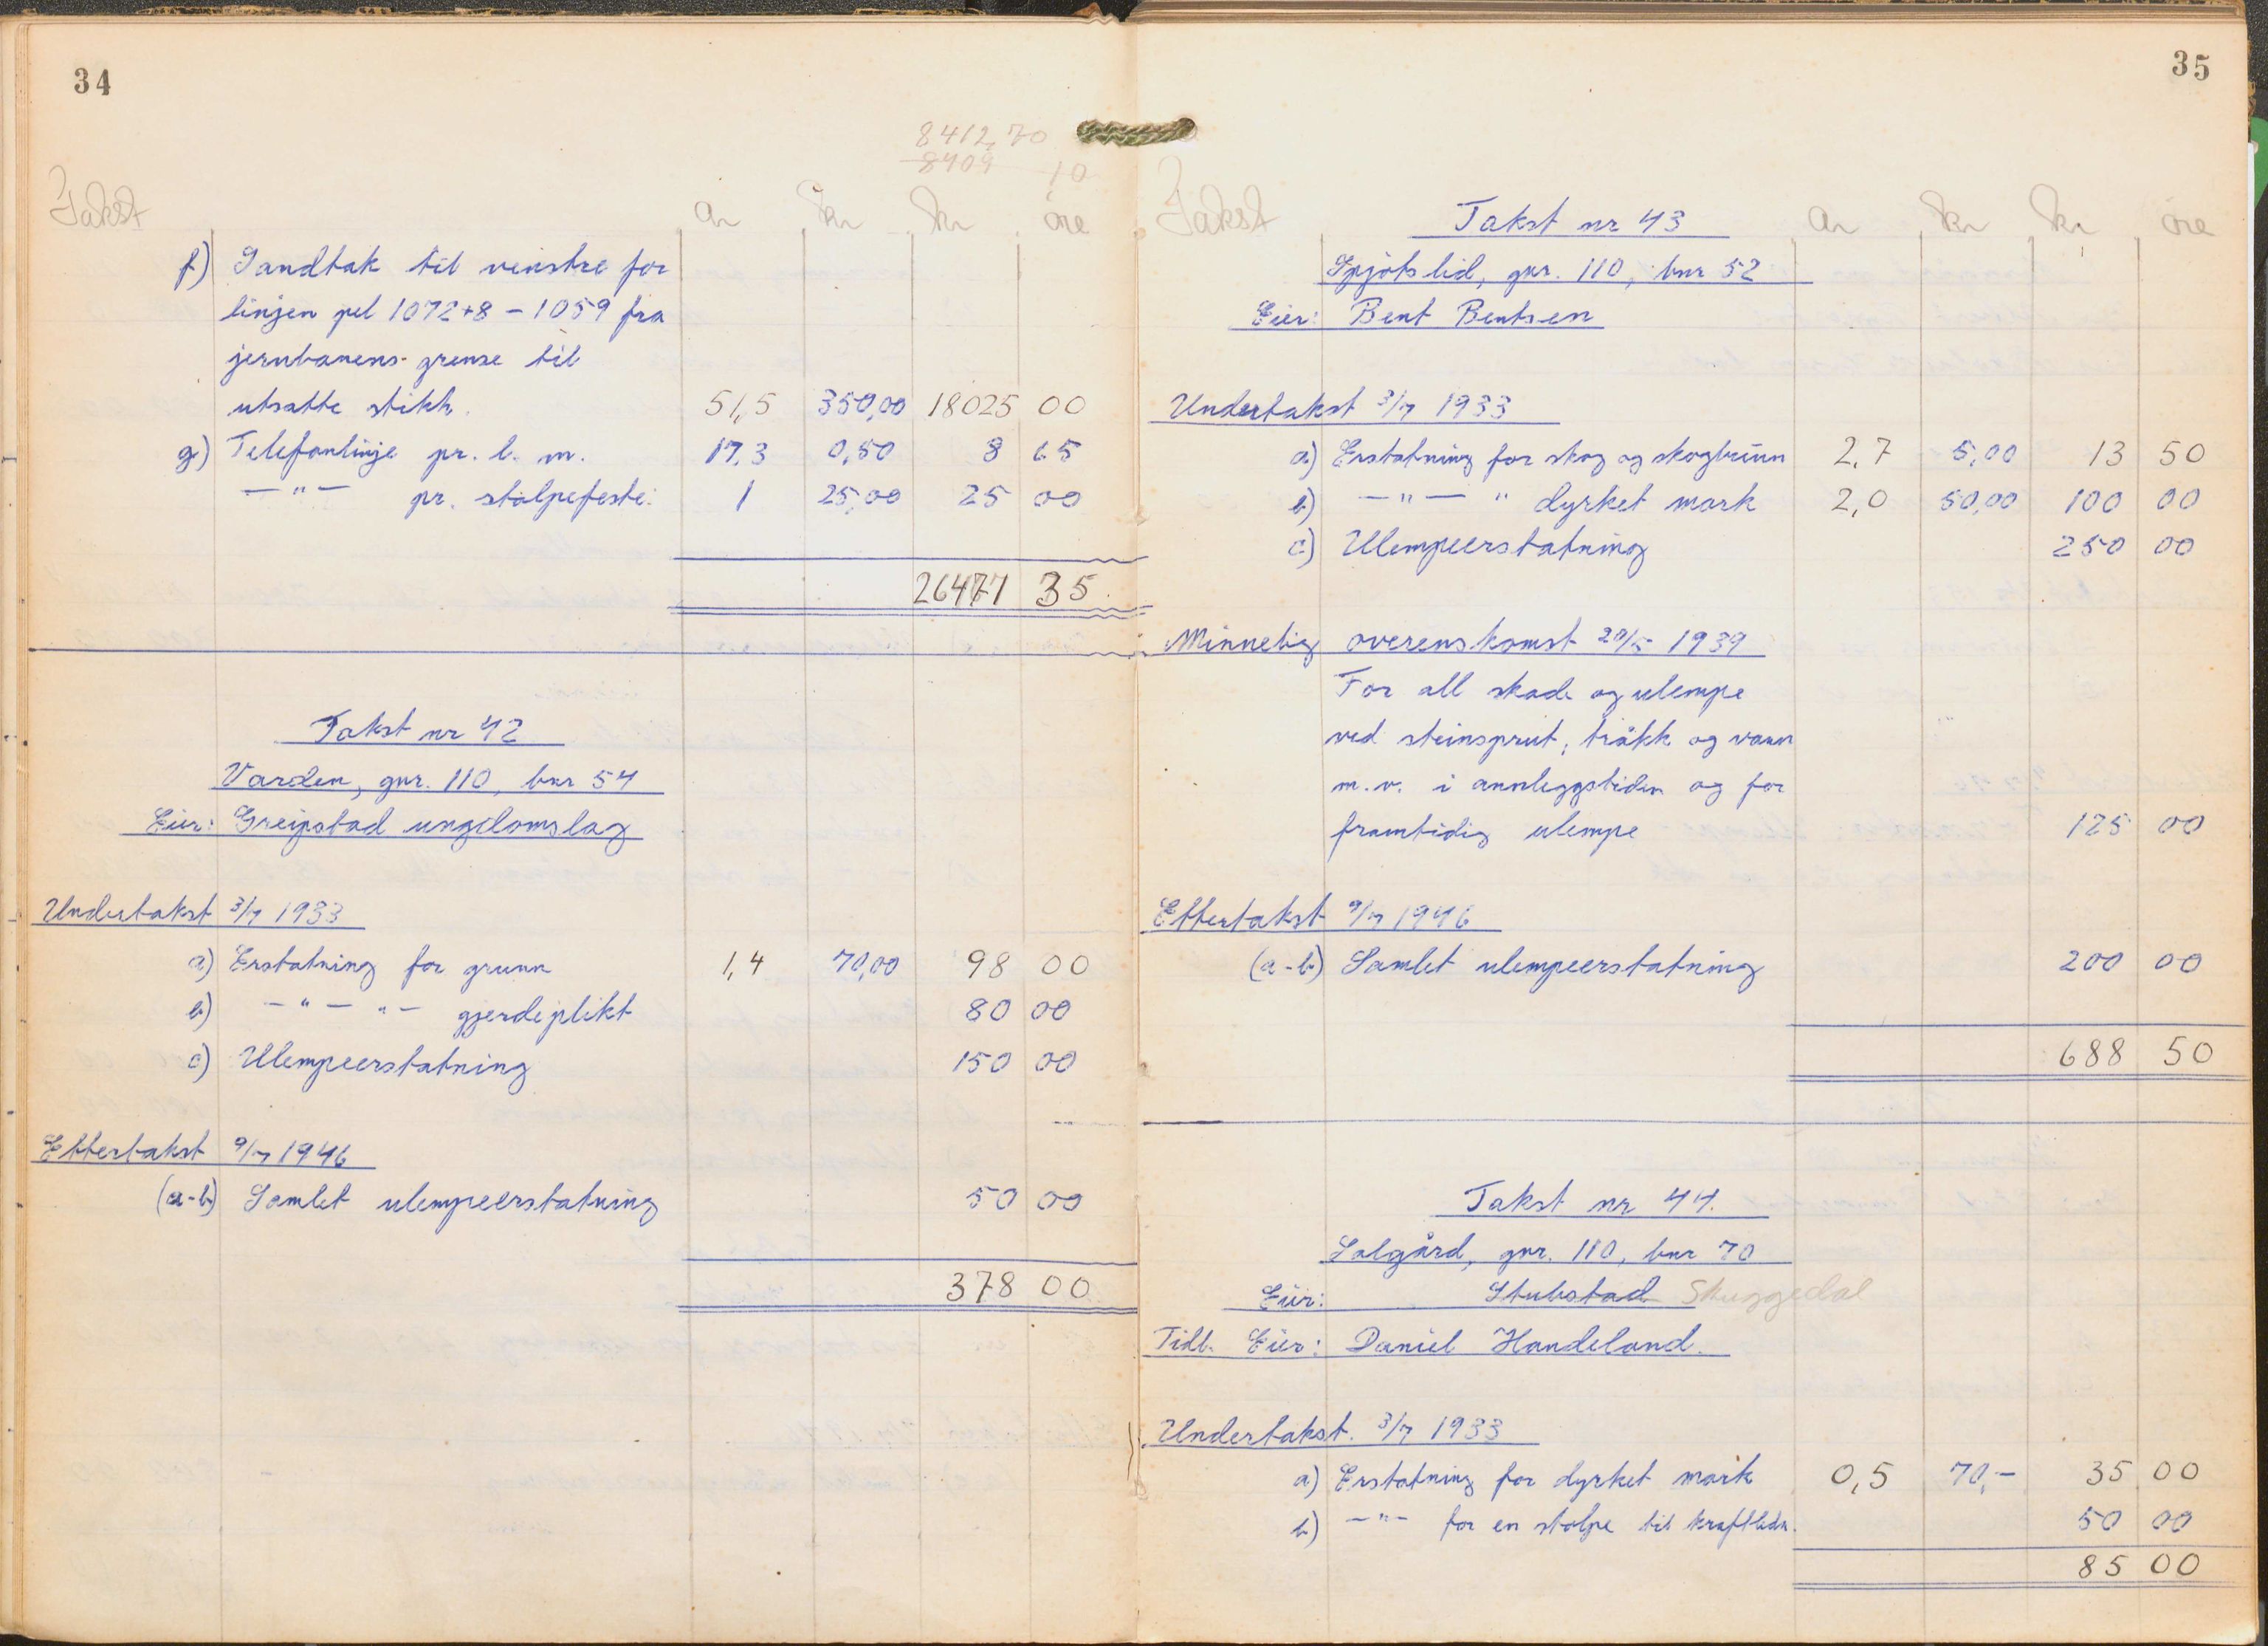 34
8412,70
8409 10
Takst ar kr kr øre
f) Sandtak til venstre for
linjen pel 1072+8 - 1059 fra
jernbanens grense til
utsatte stikk. 51,5 350,00 18025 00
g) Telefonlinje pr. l. m. 17,3 0,50 8 65
—"— pr. stolpefeste. 1 25,00 25 00
26477 35
Takst nr 42
Varden, gnr. 110, bnr 54
Eier: Greipstad ungdomslag
Undertakst 3/7 1933
a) Erstatning for grunn 1,4 70,00 98 00
b) —"— "— gjerdeplikt 80 00
c) Ulempeerstatning 150 00
Ettertakst 9/7 1946
(a-b) Samlet ulempeerstatning 50 00
378 00
35
Takst ar kr kr øre
Takst nr 43
Spjotslid, gnr. 110, bnr 52
Eier: Bent Bentsen
Undertakst 3/7 1933
a) Erstatning for skog og skogbrunn 2,7 5,00 13 50
b) —"— " dyrket mark 2,0 50,00 100 00
c) Ulempeerstatning 250 00
Minnelig overenskomst 20/5 1939
For all skade og ulempe
ved steinsprut, tråkk og vann
m.v. i annleggstiden og for
framtidig ulempe 125 00
Ettertakst 9/7 1946
(a-b) Samlet ulempeerstatning 200 00
688 50
Takst nr 44.
Solgård, gnr. 110, bnr 70
Eier: Stubstad Skuggedal
Tidl. Eier: Daniel Handeland.
Undertakst. 3/7 1933
a) Erstatning for dyrket mark 0,5 70,- 35 00
b) —"— for en stolpe til kraftledn. 50 00
85 00